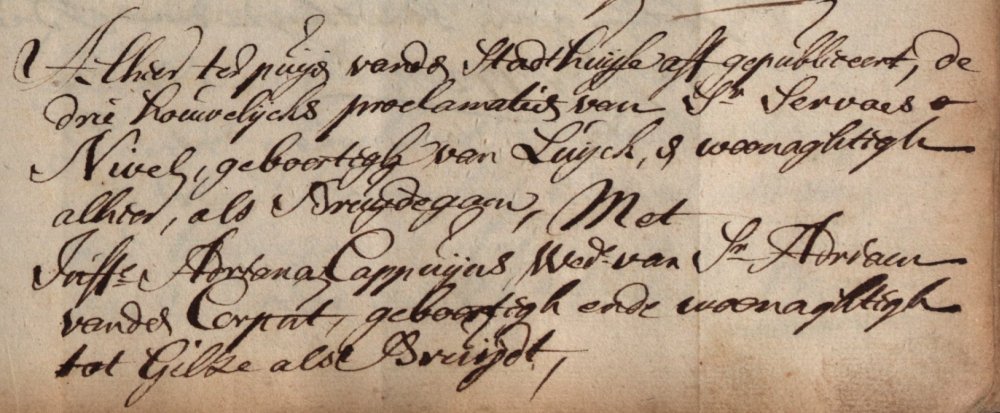 Alhier ter puije vande Stadthuijse aff gepubliceert, de
drie houwelijcks proclamatien van Sr. Servaes
Nivel, geboortigh van Luijck, & woonaghtigh
alhier, als Bruijdegom, Met
Juffe. Adriana Cappuijns Wede. van Sr. Adriaen
vander Corput, geboortigh ende woonaghtigh
tot Gilze als Bruijdt,